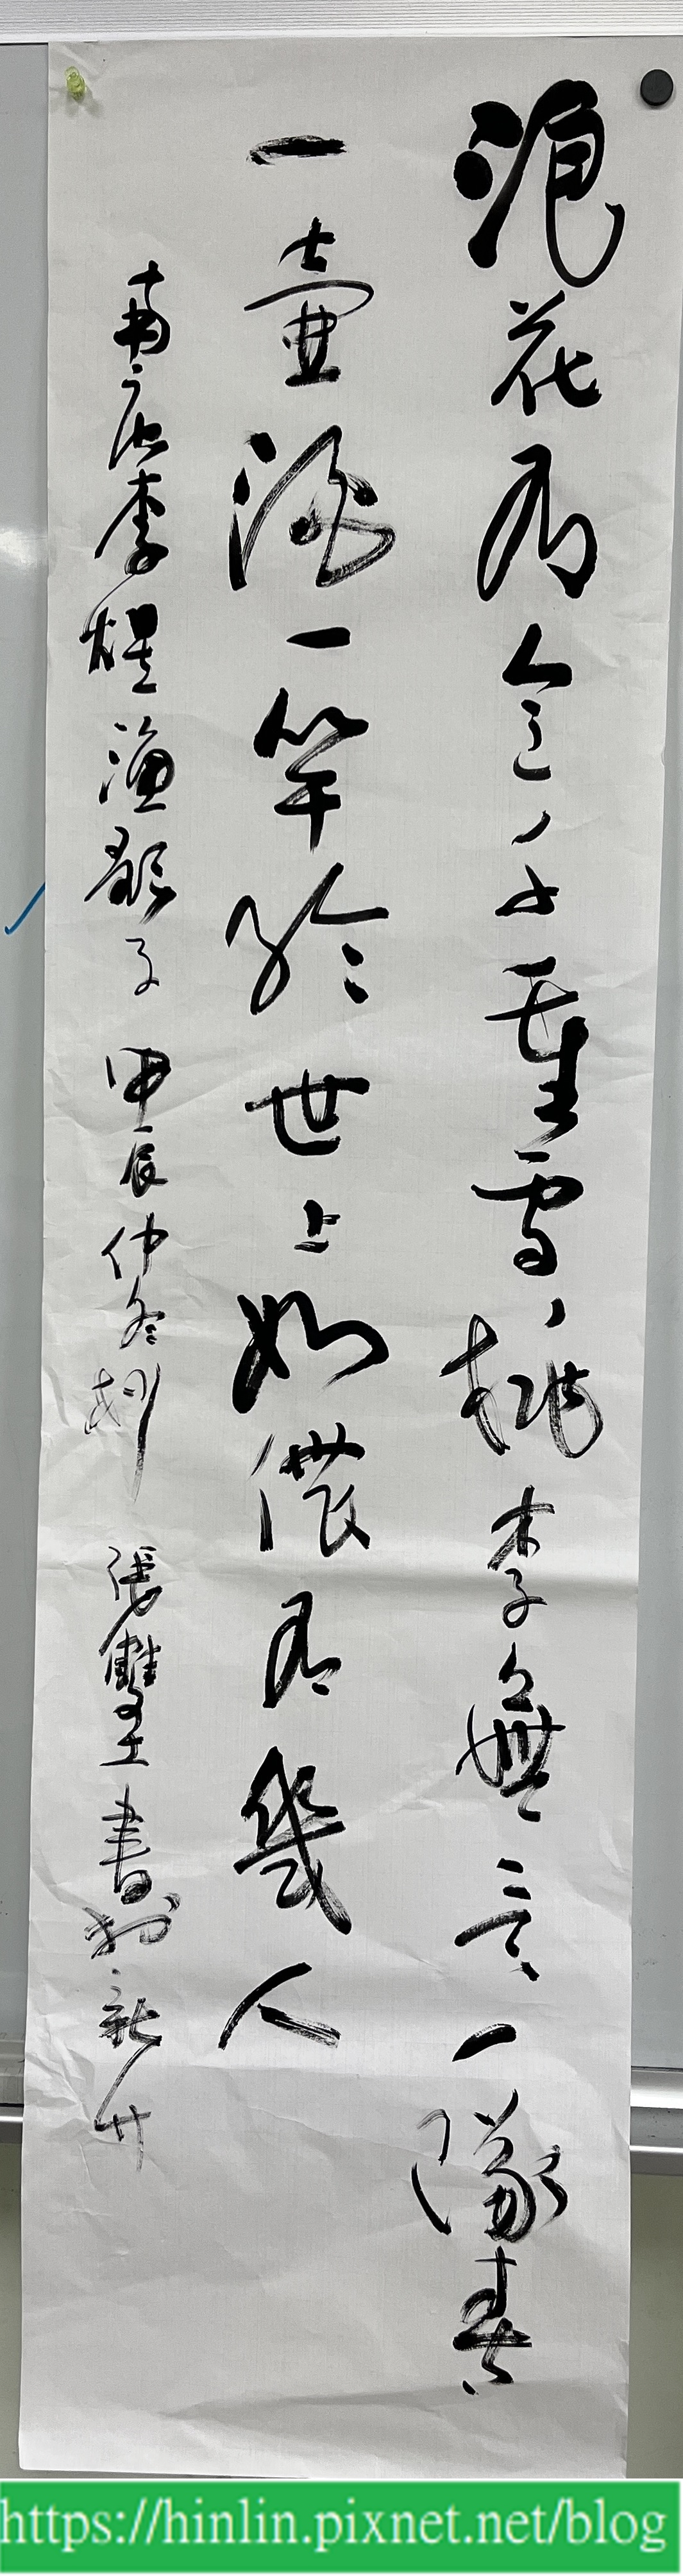 浪花有意千重雪桃李無言一隊春
一壺酒一竿綸世上如儂有幾人
南唐李煜漁歌子 甲辰仲冬 張雙 書於新竹
https://hinlin.pixnet.net/blog